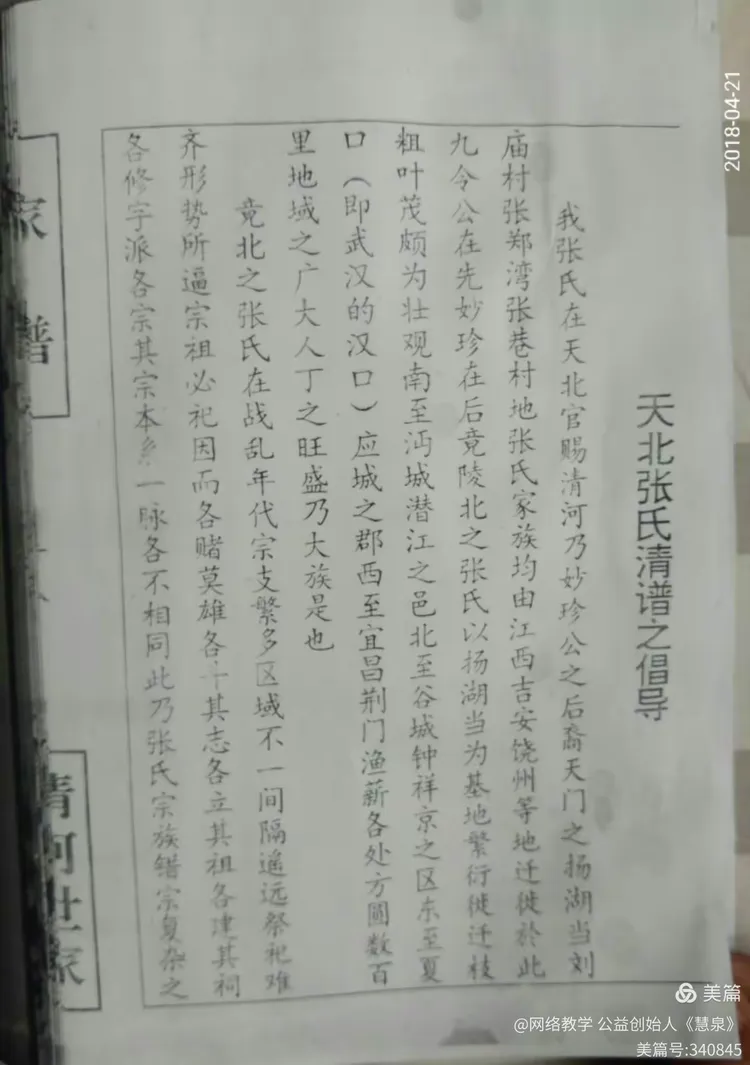 天北张氏清谱之倡导
我张氏在天北官赐清河乃妙珍公之后裔天门之扬湖当刘
庙村张郑湾张巷村地张氏家族均由江西吉安饶州等地迁徙於此
九令公在先妙珍在后竟陵北之张氏以扬湖当为基地繁衍徙迁枝
粗叶茂颇为壮观南至沔城潜江之邑北至谷城钟祥京之区东至夏
口（即武汉的汉口）应城之郡西至宜昌荆门渔薪各处方圆数百
里地域之广大人丁之旺盛乃大族是也
竟北之张氏在战乱年代宗支繁多区域不一间隔遥远祭祀难
齐形势所逼宗祖必祀因而各赌莫雄各其志各立其祖各建其祠
各修字派各宗其宗本一脉各不相同此乃张氏宗族错宗复杂之
家谱
清河世家
2018-04-21
美篇
@网络教学 公益创始人《慧泉》
美篇号:340845